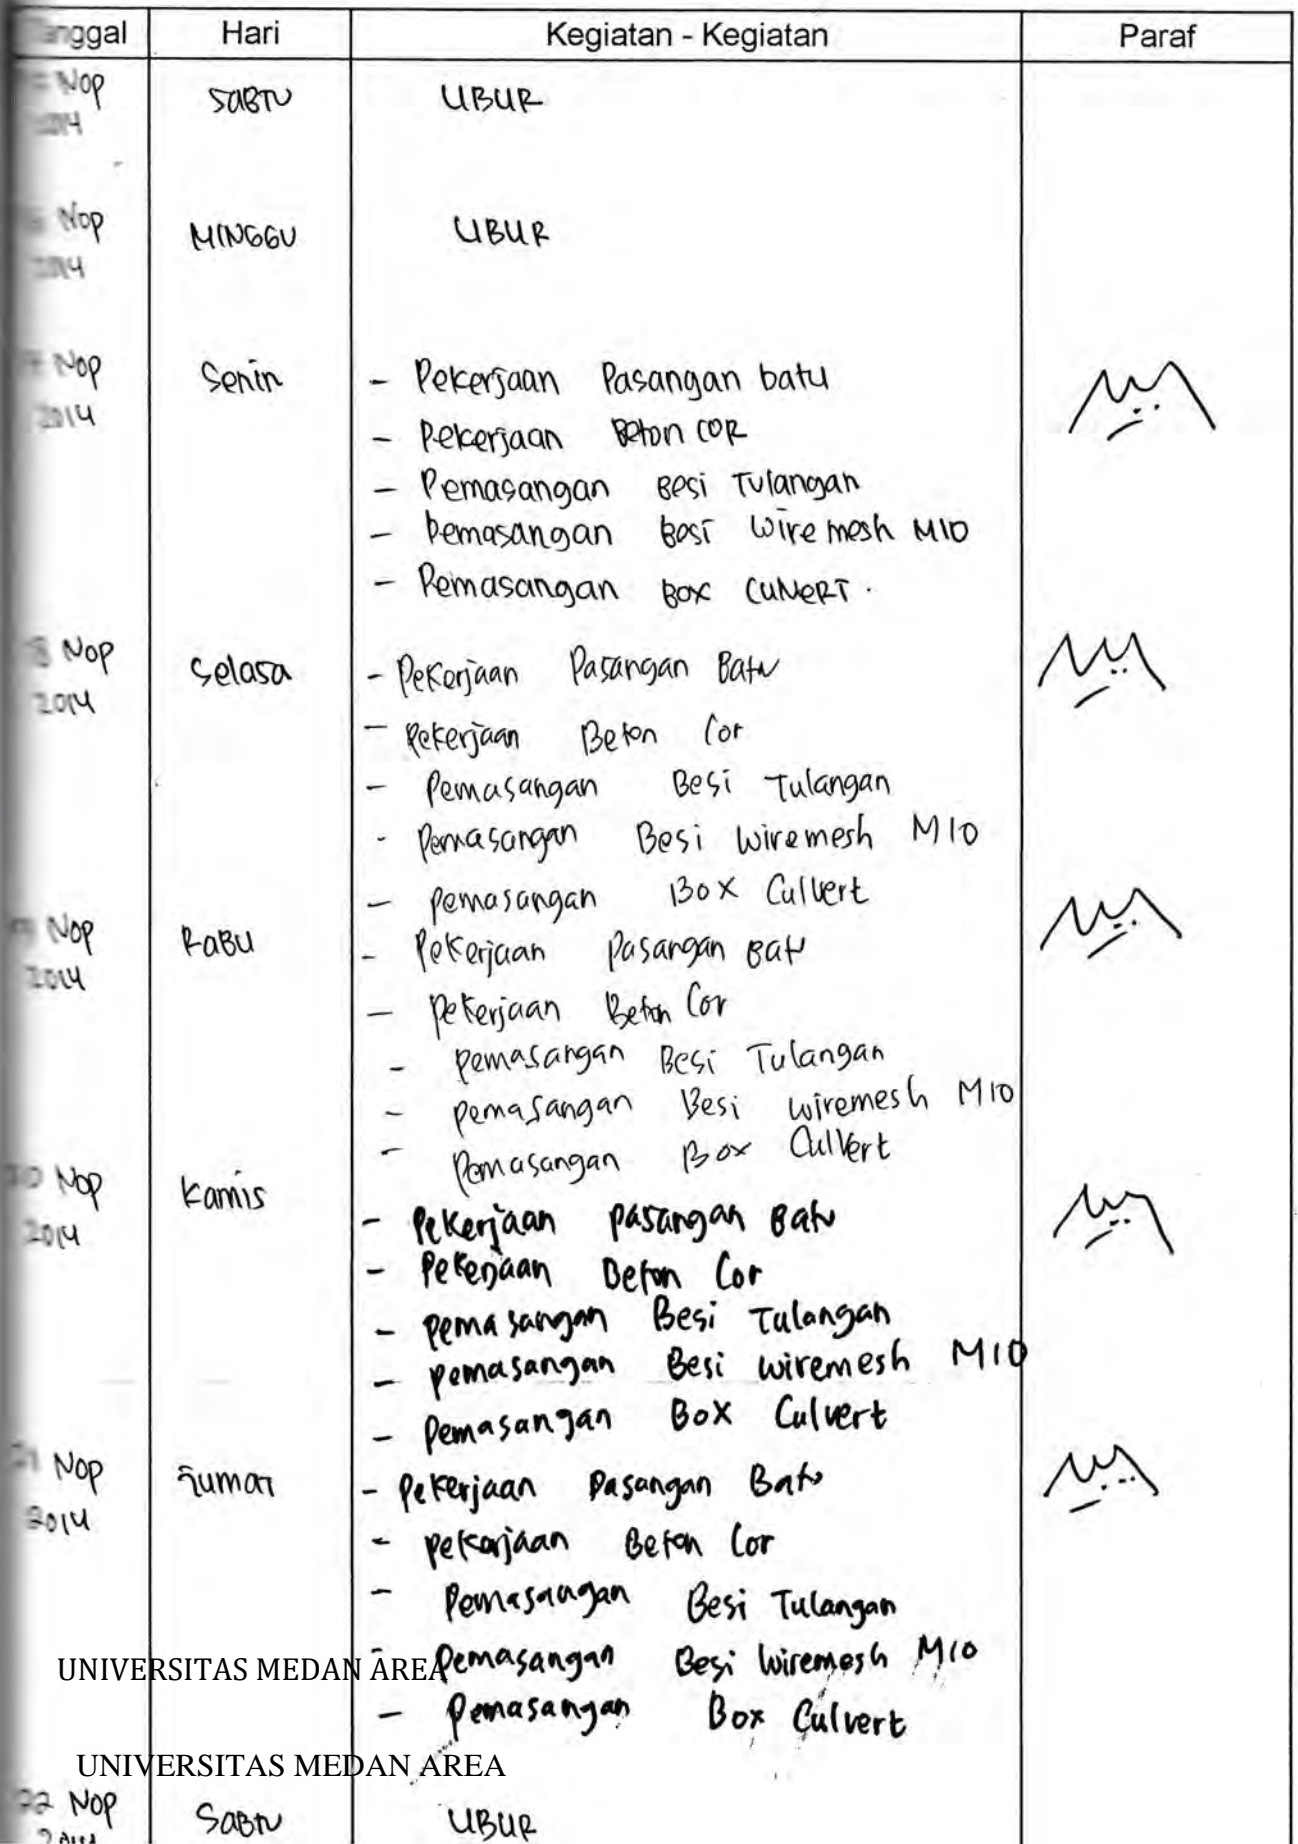 Tanggal Hari Kegiatan - Kegiatan Paraf
Nop SABTU LIBUR
2014
Nop MINGGU LIBUR
2014
Nop Senin - Pekerjaan Pasangan batu
2014
- Pekerjaan Beton COR
- Pemasangan Besi Tulangan
- Pemasangan Besi Wire mesh M10
- Pemasangan BOX CULVERT.
8 Nop Selasa - Pekerjaan Pasangan Batu
2014
- Pekerjaan Beton Cor
- Pemasangan Besi Tulangan
- Pemasangan Besi Wiremesh M10
- Pemasangan Box Culvert
Nop RABU - Pekerjaan Pasangan Batu
2014
- Pekerjaan Beton Cor
- Pemasangan Besi Tulangan
- Pemasangan Besi Wiremesh M10
- Pemasangan Box Culvert
20 Nop Kamis
2014 - Pekerjaan Pasangan Batu
- Pekerjaan Beton Cor
- Pemasangan Besi Tulangan
- Pemasangan Besi Wiremesh M10
- Pemasangan Box Culvert
21 Nop Jumat - Pekerjaan Pasangan Batu
2014
- Pekerjaan Beton Cor
- Pemasangan Besi Tulangan
- Pemasangan Besi Wiremesh M10
UNIVERSITAS MEDAN AREA
- Pemasangan Box Culvert
UNIVERSITAS MEDAN AREA
22 Nop SABTU LIBUR
2014